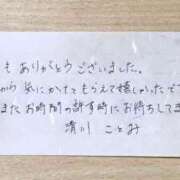 も ありがとうございました。
から 気にかけてもらえて嬉しかったで
また お時間の許す時に お待ちしてま
清川 ことみ